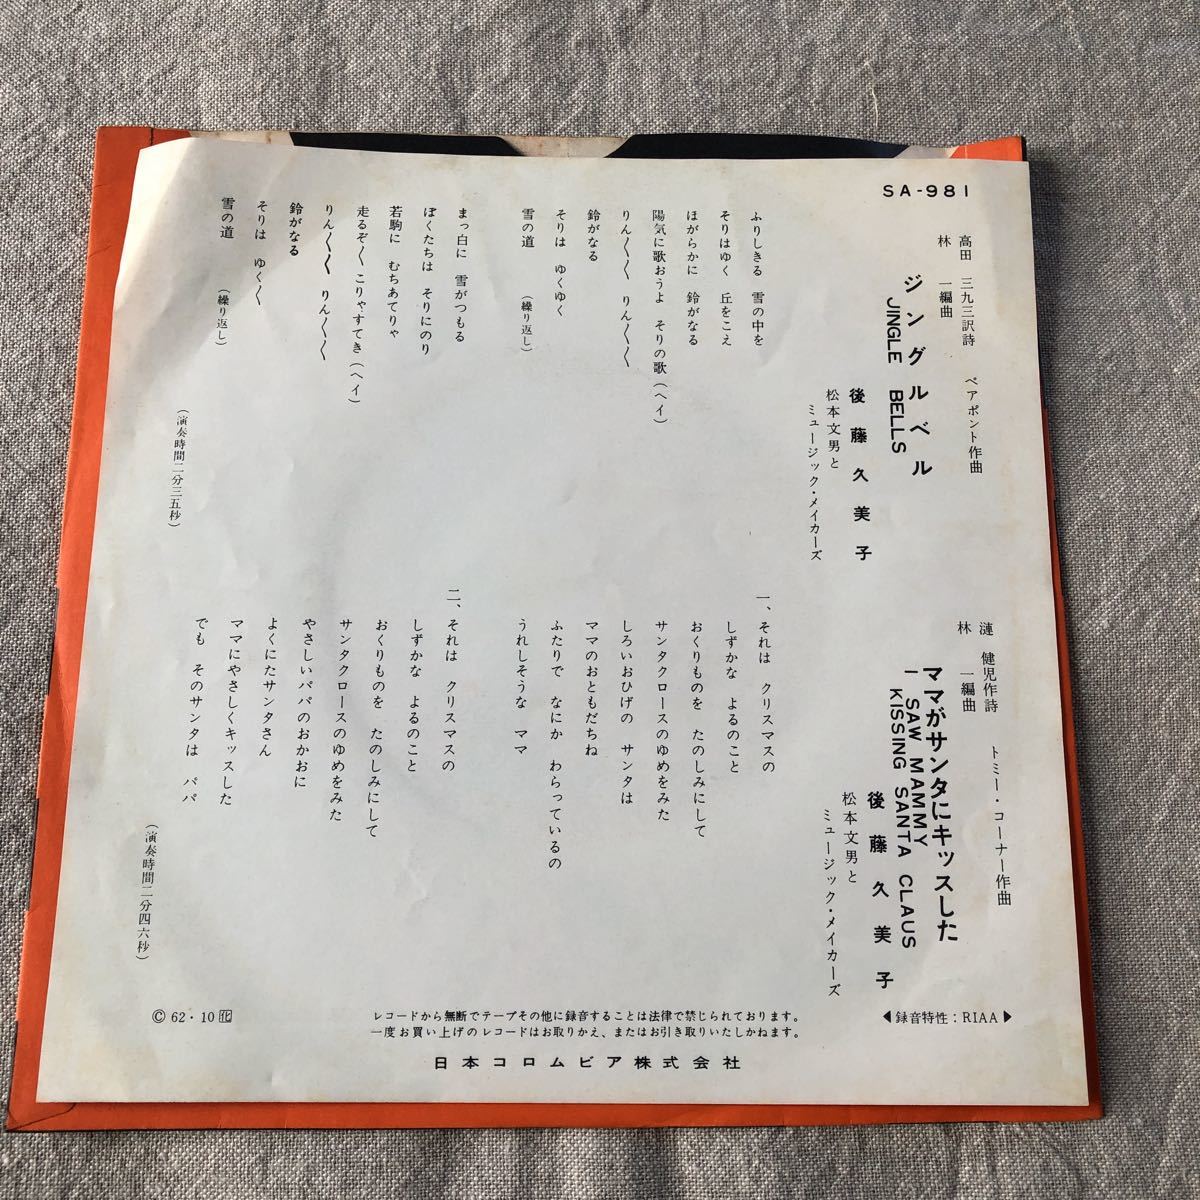 SA-981
高田 三九三訳詩 ペアポント作曲
林 一編曲
ジングルベル
JINGLE BELLS
後藤久美子
松本文男と
ミュージック・メイカーズ
ふりしきる 雪の中を
そりはゆく 丘をこえ
ほがらかに 鈴がなる
陽気に歌おうよ そりの歌(ヘイ)
りん〱〱 りん〱〱
鈴がなる
そりは ゆくゆく
雪の道 (繰り返し)
まっ白に 雪がつもる
ぼくたちは そりにのり
若駒に むちあてりゃ
走るぞ〱 こりゃすてき(ヘイ)
りん〱〱 りん〱〱
鈴がなる
そりは ゆく〱
雪の道 (繰り返し)
(演奏時間二分三五秒)
漣 健児作詩 トミー・コーナー作曲
林 一編曲
ママがサンタにキッスした
I SAW MAMMY
KISSING SANTA CLAUS
後藤久美子
松本文男と
ミュージック・メイカーズ
一、それは クリスマスの
しずかな よるのこと
おくりものを たのしみにして
サンタクロースのゆめをみた
しろいおひげの サンタは
ママのおともだちね
ふたりで なにか わらっているの
うれしそうな ママ
二、それは クリスマスの
しずかな よるのこと
おくりものを たのしみにして
サンタクロースのゆめをみた
やさしいパパのおかおに
よくにたサンタさん
ママにやさしくキッスした
でも そのサンタは パパ
(演奏時間二分四六秒)
Ⓒ 62・10 化
レコードから無断でテープその他に録音することは法律で禁じられております。
一度お買い上げのレコードはお取りかえ、またはお引き取りいたしかねます。
◀録音特性:RIAA▶
日本コロムビア株式会社